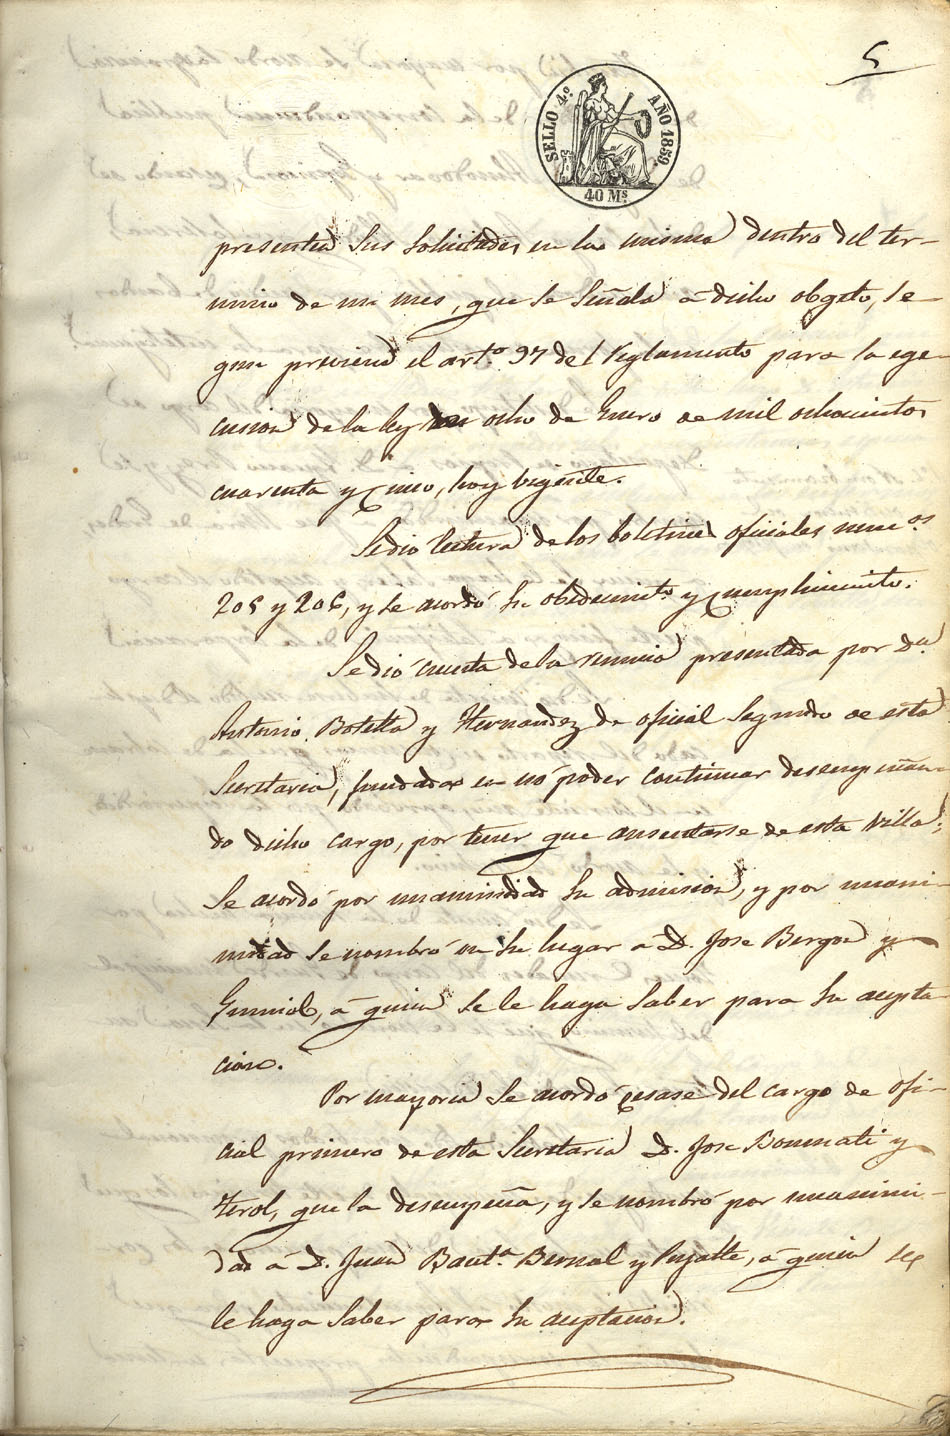 5
SELLO 4.º AÑO 1859
40 Ms.
presenten sus solicitudes en la misma dentro del ter-
mino de un mes, que se señala á dicho obgeto, se-
gun previene el art.º 97 del Reglamento para la ege-
cusion de la ley de ocho de Enero de mil ochocientos
cuarenta y cinco, hoy bigente.
Se dió lectura de los boletines oficiales numos
205 y 206, y se acordó su obedecimto y cumplimiento.
Se dió cuenta de la renuncia presentada por Dn
Antonio Botella y Hernandez de oficial segundo de esta
Secretaria, fundada en no poder continuar desempeñan-
do dicho cargo, por tener que ausentarse de esta Villa;
Se acordó por unanimidad su admision, y por unani-
midad se nombró en su lugar á D. Jose Burgos y
á quien se le haga saber para su acepta
cion.
Por mayoria se acordó cesase del cargo de ofi-
cial primero de esta Secretaria D. Jose Bonmati y
Terol, que la desempeña, y se nombró por unanimi-
dad á D. Juan Bauta Bernal y Pujalte, á quien se
le haga saber para su aceptacion.